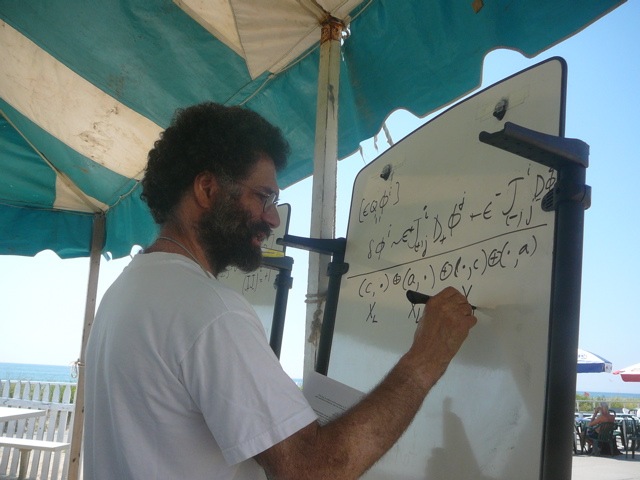 [εQ, Φⁱ]
δΦⁱ ~ ε⁺J₍₊₎ⁱⱼ D₊Φʲ + ε⁻J₍₋₎ⁱⱼ DΦ
(c, ·) ⊕ (a, ·) ⊕ (·, c) ⊕ (·, a)
X_L X_L Y